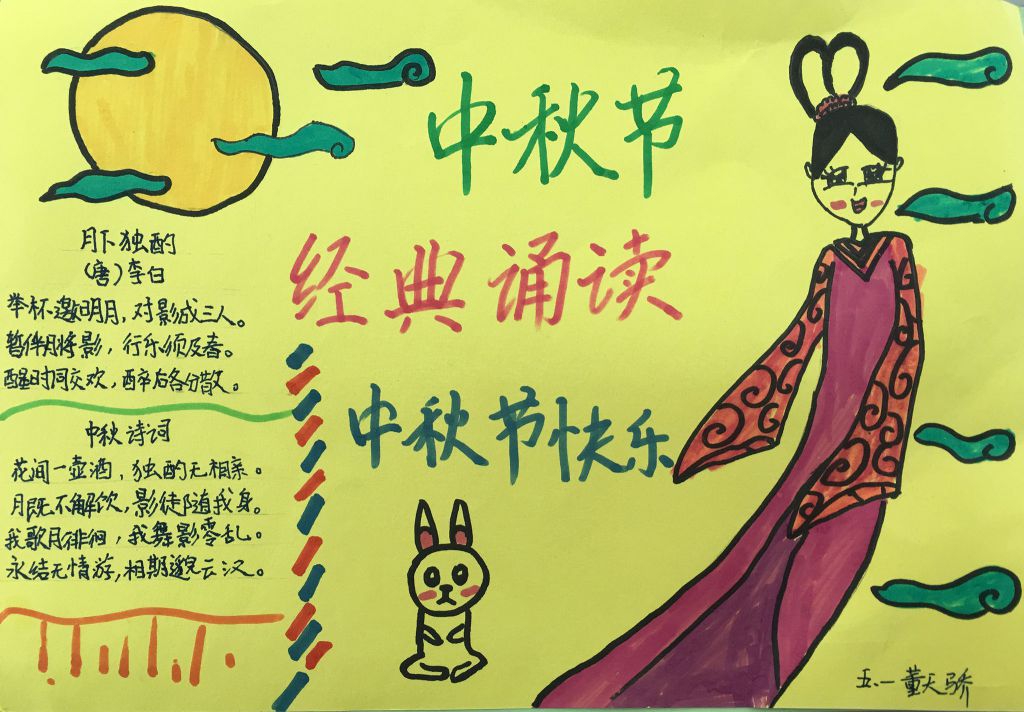 中秋节
经典诵读
中秋节快乐
月下独酌
(唐)李白
举杯邀明月,对影成三人。
暂伴月将影,行乐须及春。
醒时同交欢,醉后各分散。
中秋诗词
花间一壶酒,独酌无相亲。
月既不解饮,影徒随我身。
我歌月徘徊,我舞影零乱。
永结无情游,相期邈云汉。
五.一董天骄